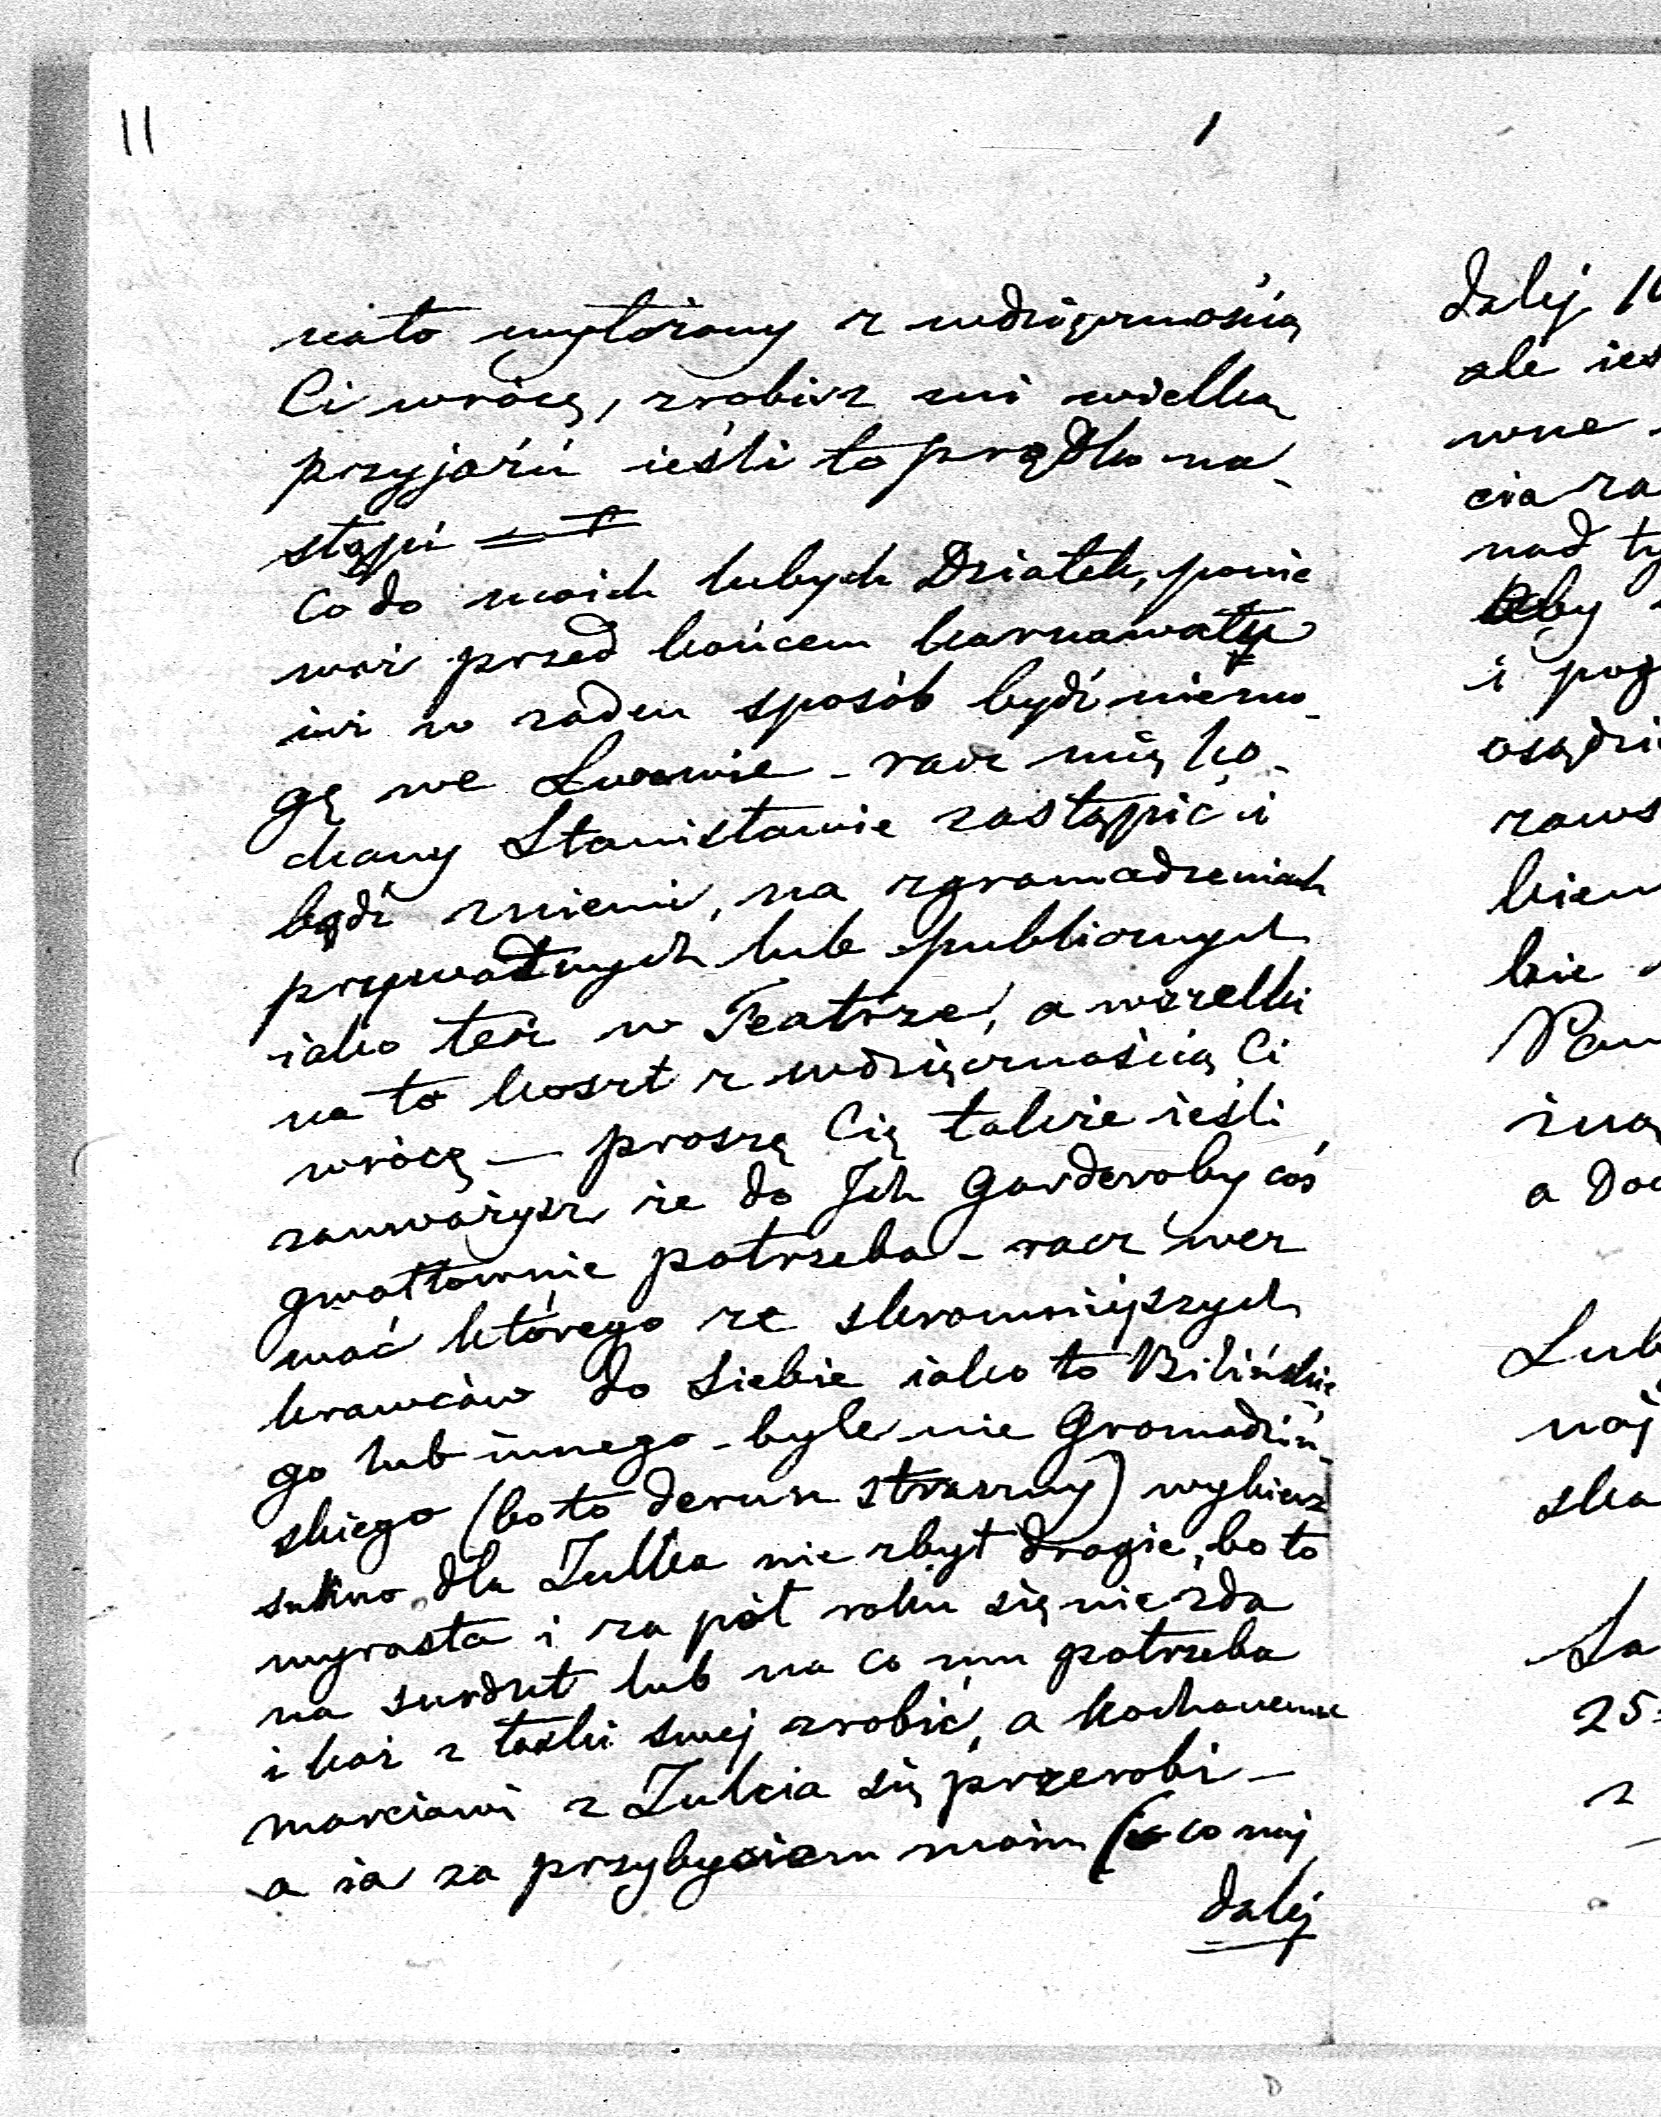 11
1
nato wyłożony z wdzięcznością
Ci wrócę, zrobisz mi wielką
przyjaźń ieśli to prędko na-
stąpi
Co do moich lubych Dziatek, ponie
waż przed końcem karnawału
iuż w żaden sposób bydź niemo-
gę we Lwowie - racz mię ko-
chany Stanisławie zastąpić i
bądź zniemi, na zgromadzeniach
prywatnych lub publicznych
iako też w Teatrze, a wszelki
na to koszt z wdzięcznością Ci
wrócę — proszę Cię także ieśli
zauważysz że do Ich Garderoby coś
gwałtownie potrzeba - racz wez
wać którego ze skromniejszych
krawców do siebie iako to Bilińskie
go lub innego - byle nie Gromadziń-
skiego (bo to zdzierun straszny) wybierz
sukno dla Julka nie zbyt drogie, bo to
wyrasta i za pół roku się nie zda
na surdut lub na co mu potrzeba
i każ z łaski swej zrobić, a kochanemu
Marciowi z Julcia się przerobi —
a ia za przybyciem moim (co naj
dalej
dalej
ale ies
wne
cia za
nad ty
aby
i pog
osądzi
zaws
kiem
kie
Pan
żną
a Do
Lub
naj
ska
La
25
z